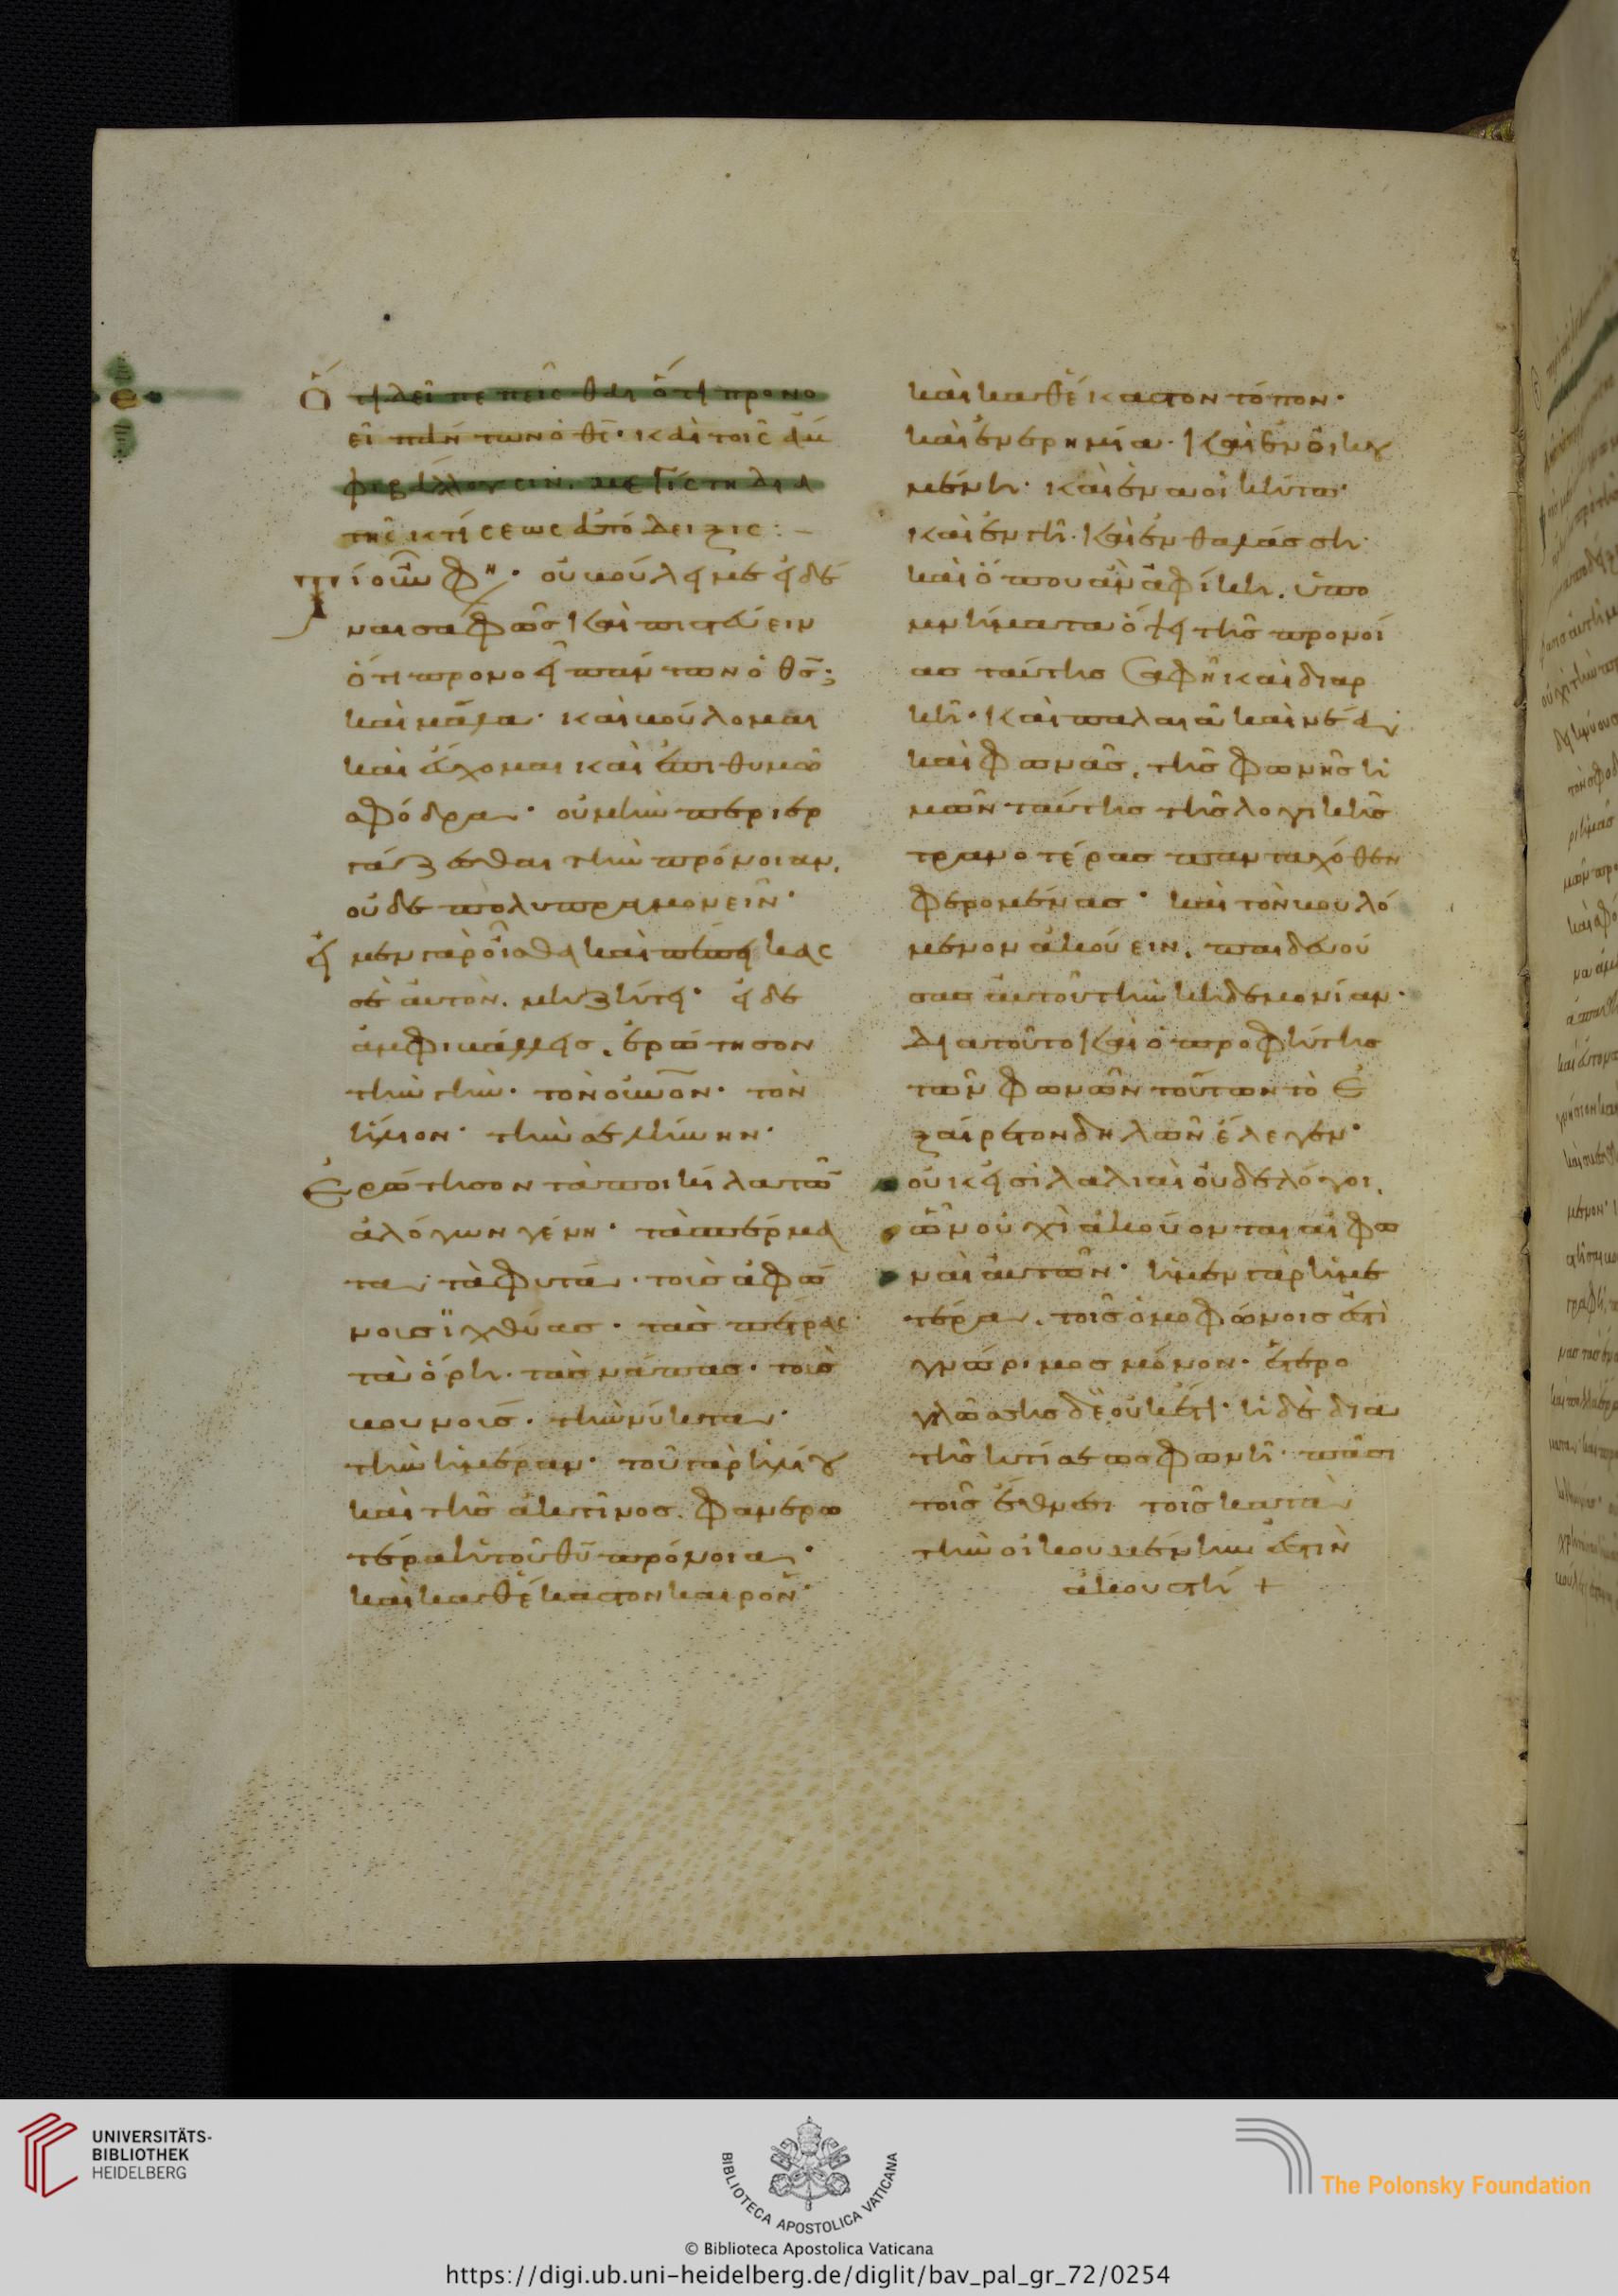 Ὅτι δεῖ πεπεῖσθαι ὅτι προνο
εῖ πάντων ὁ θς̅· καὶ τοῖς ἀμ
φιβάλλουσιν. μεγίστη διὰ
τῆς κτίσεως ἀπόδειξις: –
Τί οὖν φη· οὐ βούλει με εἰδέ
ναι σαφῶς καὶ πιστεύειν
ὅτι προνοεῖ πάντων ὁ θς̅;
καὶ μάλα· καὶ βούλομαι
καὶ εὔχομαι καὶ ἐπιθυμῶ
σφόδρα· οὐ μὴν περιερ
γάζεσθαι τὴν πρόνοιαν,
οὐδὲ πολυπραγμονεῖν·
εἰ μὲν γὰρ οἶσθα καὶ πέπεικας
σε αὐτὸν. μὴ ζήτει· εἰ δὲ
ἀμφιβάλλεις, ἐρώτησον
τὴν γῆν· τὸν οὐνὸν· τὸν
ἥλιον· τὴν σελήνην·
Ἐρώτησον τὰ ποικίλα τῶν
ἀλόγων γένη· τὰ σπέρμα
τα· τὰ φυτά· τοὺς ἀφώ
νους ἰχθύας· τὰς πέτρας·
τὰ ὄρη· τὰς νάπας· τοὺς
βουνούς· τὴν νύκτα·
τὴν ἡμέραν· τοῦ γὰρ ἡλίου
καὶ τῆς ἀκτῖνος. φανερω
τέρα ἡ τοῦ θυ̅ πρόνοια·
καὶ καθ' ἕκαστον καιρὸν·
καὶ καθ' ἕκαστον τόπον·
καὶ ἐν ἐρημία· καὶ ἐν οἰκου
μένη· καὶ ἐν ἀοικήτω·
καὶ ἐν γῆ· καὶ ἐν θαλάσση·
καὶ ὅπου ἂν ἀφίκη, ὑπο
μνήματα ὄψει τῆς προνοί
ας ταύτης σαφῆ καὶ διαρ
κῆ· καὶ παλαιὰ καὶ νέα·
καὶ φωνὰς, τῆς φωνῆς ἡ
μῶν ταύτης τῆς λογικῆς
τρανοτέρας πανταχόθεν
φερομένας· καὶ τὸν βουλό
μενον ἀκούειν, παιδευού
σας αὐτοῦ τὴν κηδεμονίαν·
Διατοῦτο καὶ ὁ προφήτης
τῶν φωνῶν τούτων τὸ ἐ
ξαίρετον δηλῶν ἔλεγεν·
οὐκ εἰσὶ λαλιαὶ οὐδὲ λόγοι,
ὧν οὐχὶ ἀκούονται αἱ φω
ναὶ αὐτῶν· ἡ μὲν γὰρ ἡμε
τέρα, τοῖς ὁμοφώνοις ἐστὶ
γνώριμος μόνον· ἑτερο
γλώσσης δὲ οὐκέτι· ἡ δὲ διὰ
τῆς κτίσεως φωνὴ· πᾶσι
τοῖς ἔθνεσι τοῖς κατὰ
τὴν οἰκουμένην ἐστὶν
ἀκουστή +
UNIVERSITÄTS-
BIBLIOTHEK
HEIDELBERG
BIBLIOTECA APOSTOLICA VATICANA
The Polonsky Foundation
© Biblioteca Apostolica Vaticana
https://digi.ub.uni-heidelberg.de/diglit/bav_pal_gr_72/0254